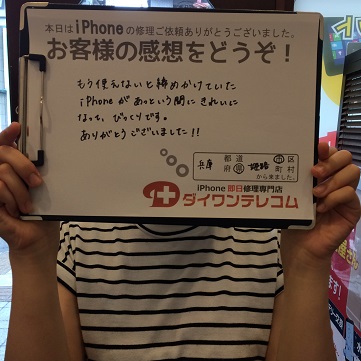 本日はiPhoneの修理ご依頼ありがとうございました。
お客様の感想をどうぞ！
もう使えないと諦めかけていた
iPhoneがあっという間にきれいに
なって、びっくりです。
ありがとうございました!!
兵庫 都道府県 姫路 市区町村
から来ました。
iPhone即日修理専門店
ダイワンテレコム